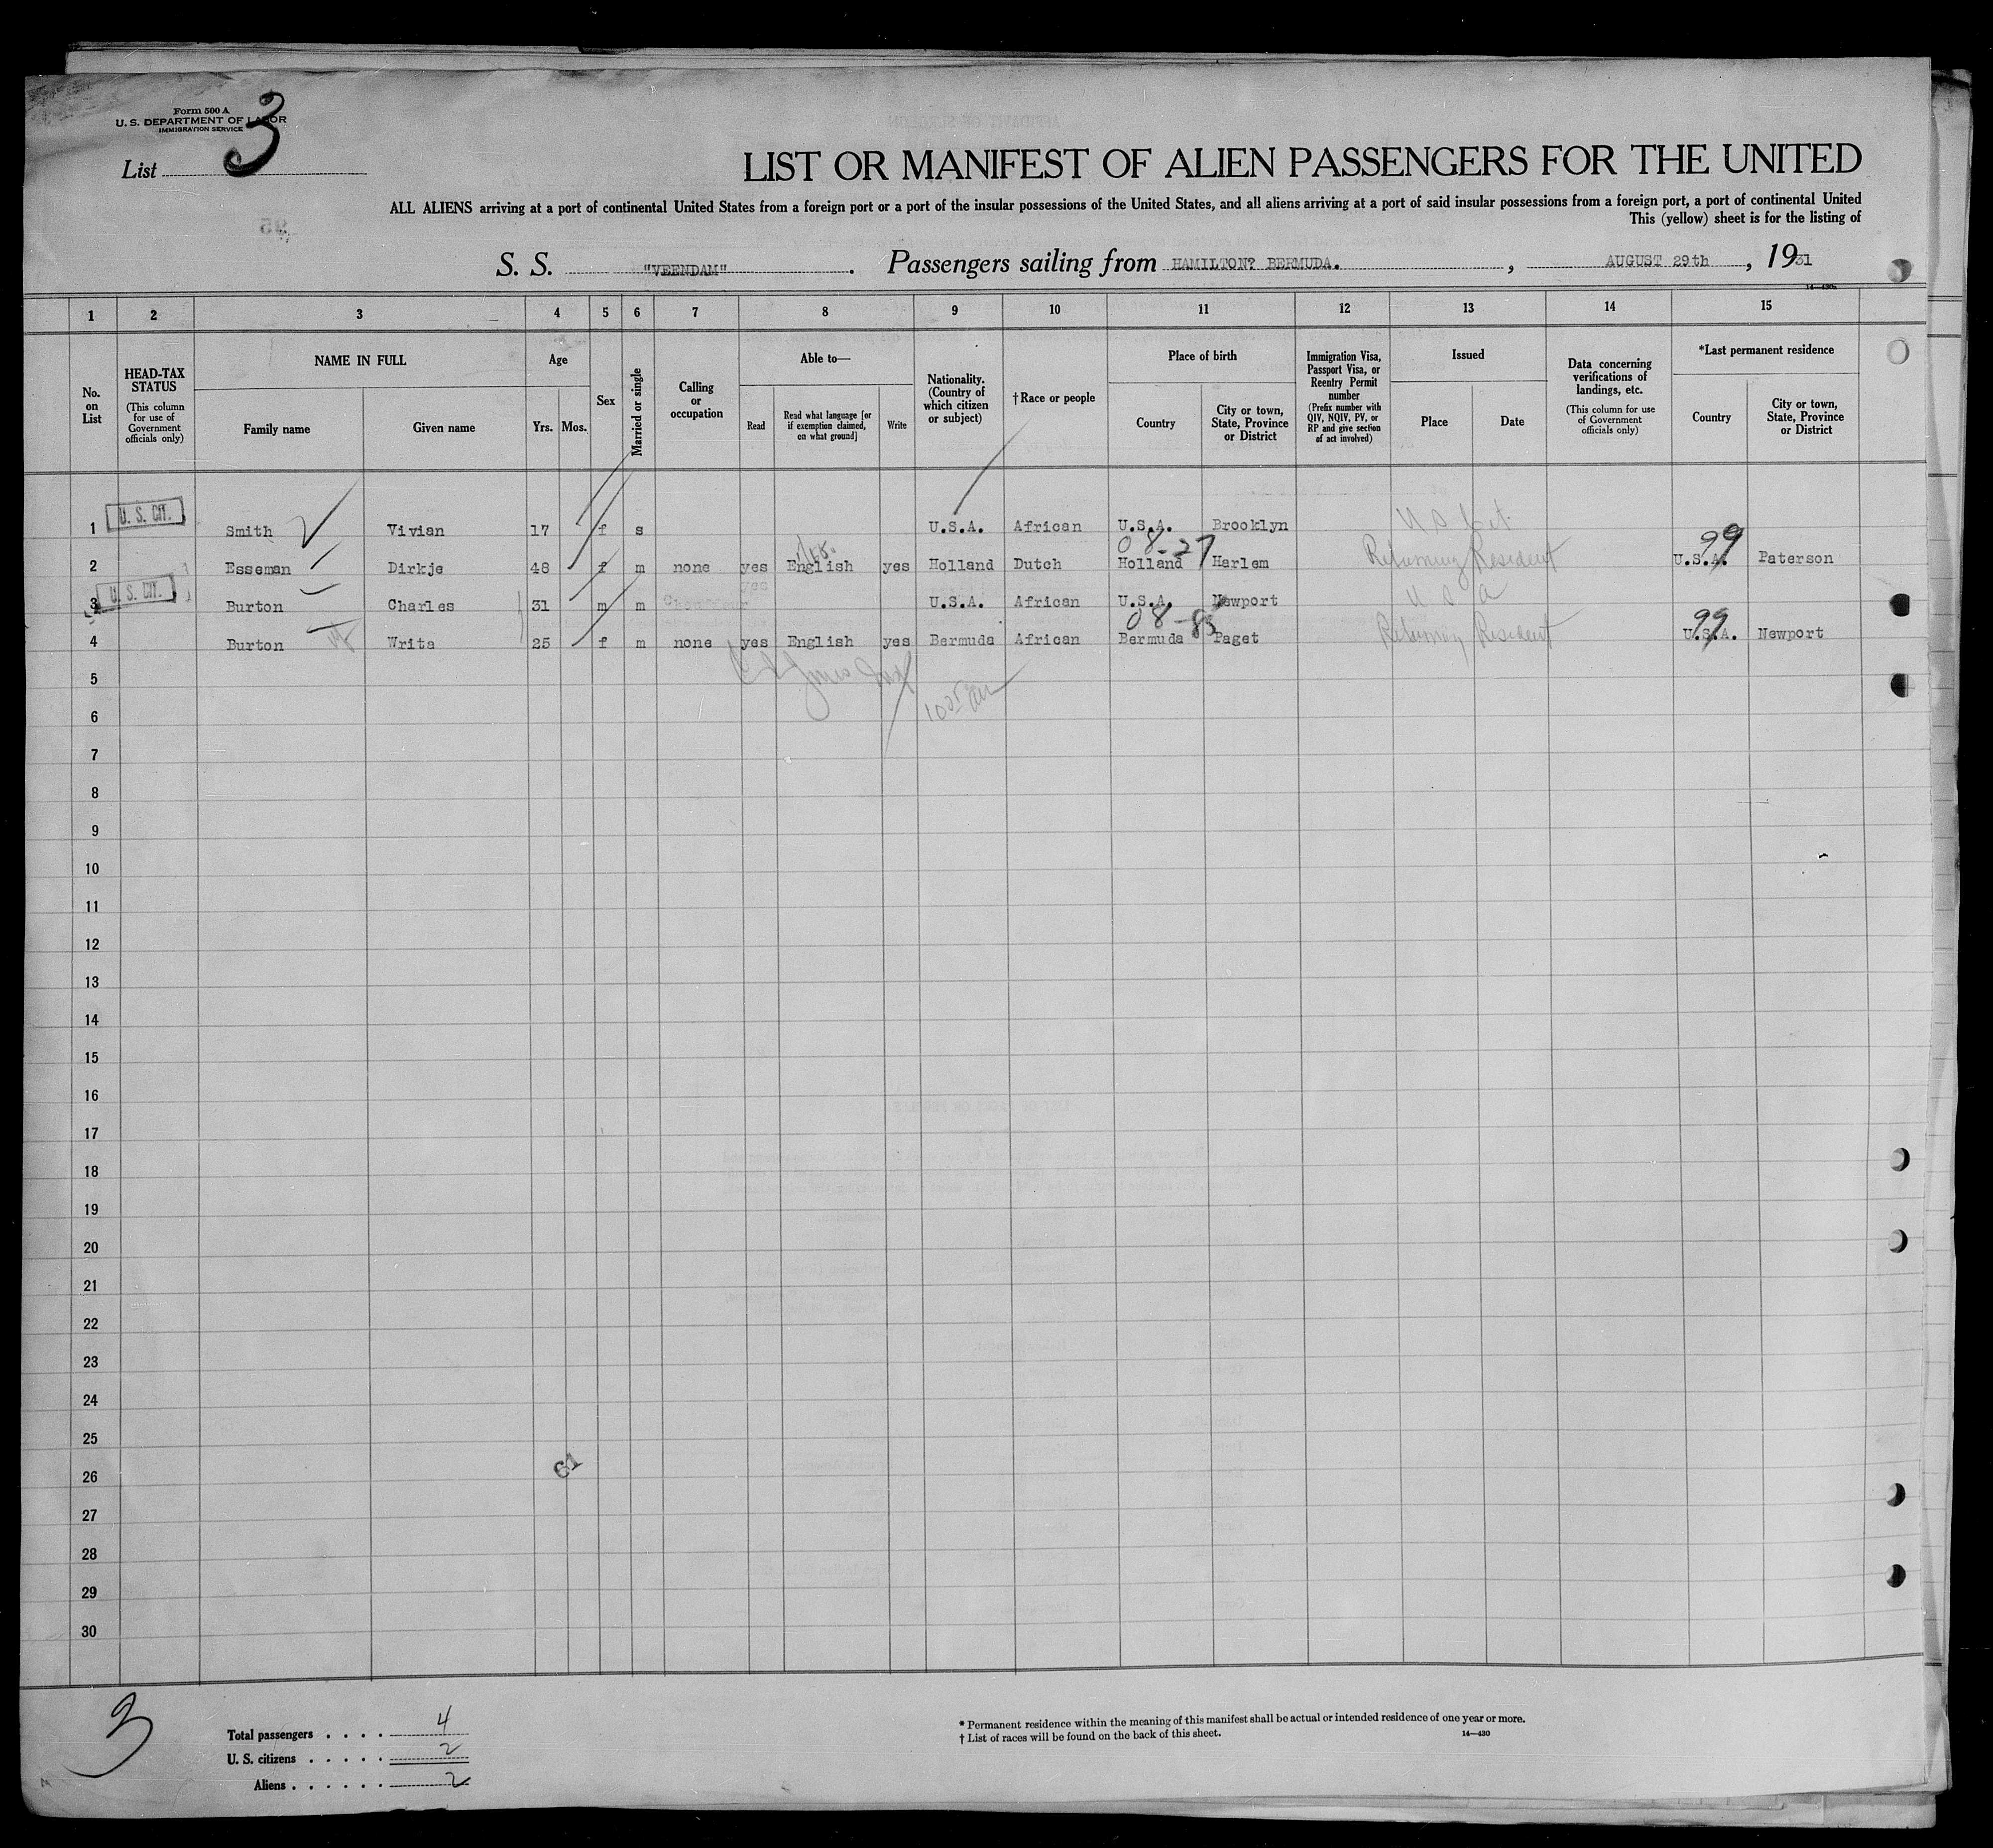 Form 500 A
U. S. DEPARTMENT OF LABOR
IMMIGRATION SERVICE
List 3
LIST OR MANIFEST OF ALIEN PASSENGERS FOR THE UNITED
ALL ALIENS arriving at a port of continental United States from a foreign port or a port of the insular possessions of the United States, and all aliens arriving at a port of said insular possessions from a foreign port, a port of continental United
This (yellow) sheet is for the listing of
95
S. S. "VEENDAM". Passengers sailing from HAMILTON? BERMUDA. , AUGUST 29th , 1931
14—430a
1 2 3 4 5 6 7 8 9 10 11 12 13 14 15
No. on List
HEAD-TAX STATUS
(This column for use of Government officials only)
NAME IN FULL
Family name Given name
Age
Yrs. Mos.
Sex
Married or single
Calling or occupation
Able to—
Read Read what language [or if exemption claimed, on what ground] Write
Nationality. (Country of which citizen or subject)
†Race or people
Place of birth
Country City or town, State, Province or District
Immigration Visa, Passport Visa, or Reentry Permit number
(Prefix number with QIV, NQIV, PV, or RP and give section of act involved)
Issued
Place Date
Data concerning verifications of landings, etc.
(This column for use of Government officials only)
*Last permanent residence
Country City or town, State, Province or District
1 U. S. CIT. Smith Vivian 17 f s U.S.A. African U.S.A. Brooklyn U S Cit
08-27 99
2 Esseman Dirkje 48 f m none yes English yes Holland Dutch Holland Harlem Returning Resident U.S.A. Paterson
yes
3 U. S. CIT. Burton Charles 31 m m Chauffeur U.S.A. African U.S.A. Newport U S A
08-85 99
4 Burton Writa 25 f m none yes English yes Bermuda African Bermuda Paget Returning Resident U.S.A. Newport
5
6
7
8
9
10
11
12
13
14
15
16
17
18
19
20
21
22
23
24
25
26
27
28
29
30
61
3
Total passengers . . . . 4
U. S. citizens . . . . . 2
Aliens . . . . . . 2
* Permanent residence within the meaning of this manifest shall be actual or intended residence of one year or more.
† List of races will be found on the back of this sheet.
14—430